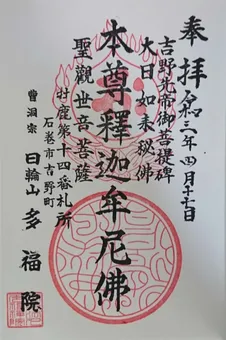 奉拝
令和三年四月十七日
吉野先帝御菩提碑
大日如来秘佛
本尊釋迦牟尼佛
聖觀世音菩薩
牡鹿第十四番札所
石巻市吉野町
曹洞宗 日輪山 多福院